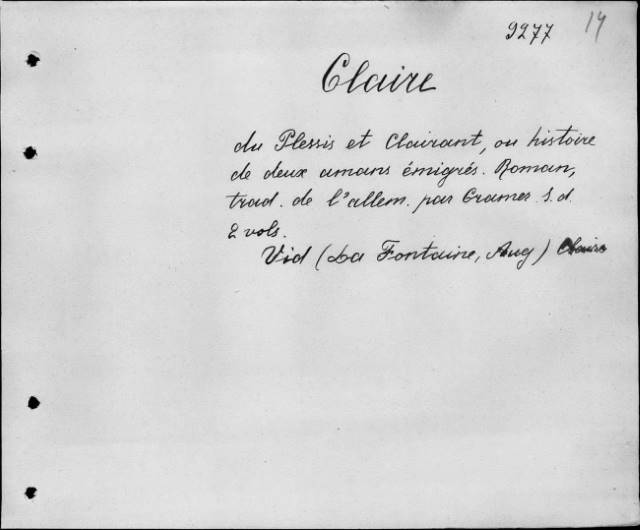 9277 14
Claire
du Plessis et Clairant, ou histoire
de deux amans émigrés. Roman,
trad. de l'allem. par Cramer s. d.
2 vols.
Vid (La Fontaine, Aug) Claire